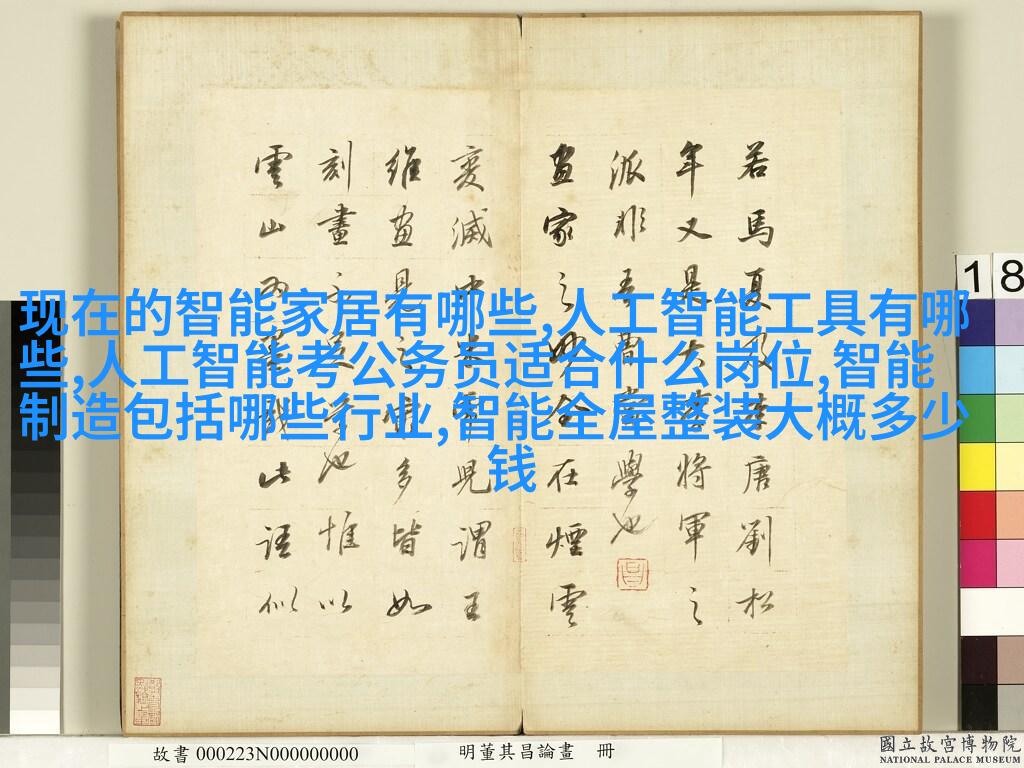 现在的智能家居有哪些,人工智能工具有哪
些,人工智能考公务员适合什么岗位,智能
制造包括哪些行业,智能全屋整装大概多少
钱
若馬夏及李唐劉松
年又是大李將軍之
派非吾曹當學也
畫家之妙全在煙雲
變滅中米虎兒謂王
維畫見之 多皆如
刻畫不足學也惟以
雲山 墨戲此語似
18
故書 000223N000000000
明董其昌論畫 冊
國立故宮博物院
NATIONAL PALACE MUSEUM